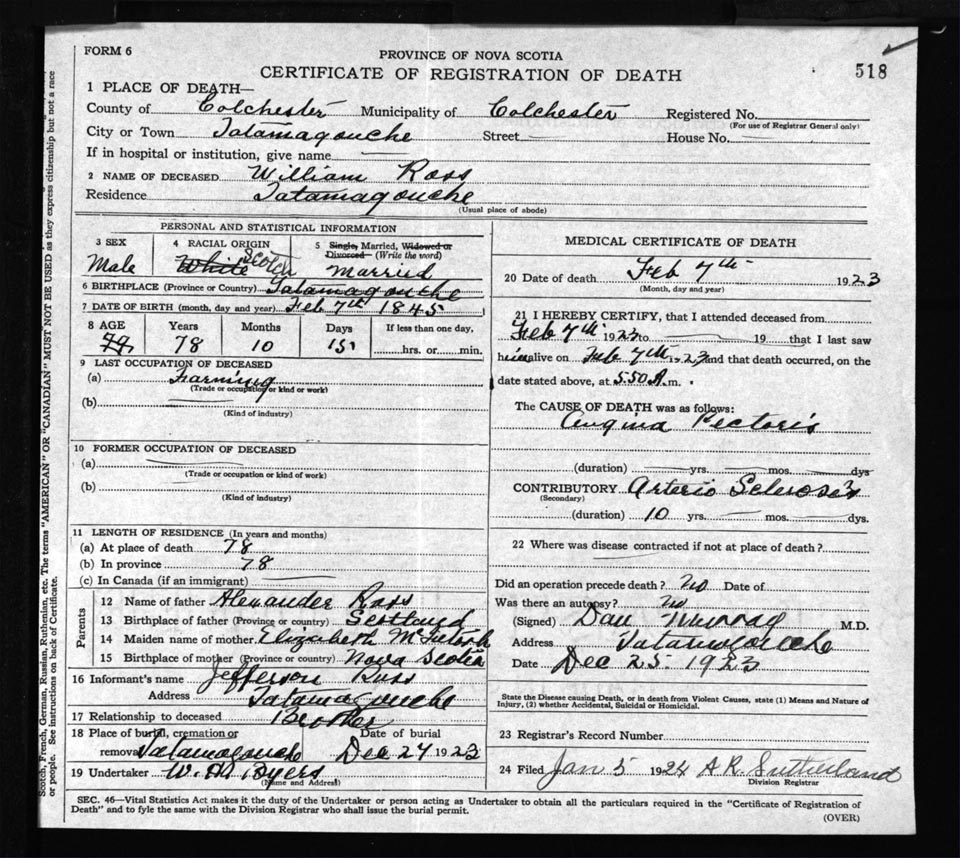 FORM 6
PROVINCE OF NOVA SCOTIA
CERTIFICATE OF REGISTRATION OF DEATH
518
1 PLACE OF DEATH—
County of Colchester Municipality of Colchester Registered No.
(For use of Registrar General only)
City or Town Tatamagouche Street House No.
If in hospital or institution, give name
2 NAME OF DECEASED William Ross
Residence Tatamagouche
(Usual place of abode)
PERSONAL AND STATISTICAL INFORMATION
3 SEX 4 RACIAL ORIGIN 5 Single, Married, Widowed or Divorced— (Write the word)
Male White Scotch Married
6 BIRTHPLACE (Province or Country) Tatamagouche
7 DATE OF BIRTH (month, day and year) Feb 7th 1845
8 AGE Years Months Days If less than one day,
79 78 10 15 hrs. or min.
9 LAST OCCUPATION OF DECEASED
(a) Farming
(Trade or occupation or kind or work)
(b)
(Kind of industry)
10 FORMER OCCUPATION OF DECEASED
(a)
(Trade or occupation or kind of work)
(b)
(Kind of industry)
11 LENGTH OF RESIDENCE (In years and months)
(a) At place of death 78
(b) In province 78
(c) In Canada (if an immigrant)
Parents
12 Name of father Alexander Ross
13 Birthplace of father (Province or country) Scotland
14 Maiden name of mother Elizabeth McIntosh
15 Birthplace of mother (Province or country) Nova Scotia
16 Informant's name Jefferson Ross
Address Tatamagouche
17 Relationship to deceased Brother
18 Place of burial, cremation or Date of burial
removal Tatamagouche Dec 24 1923
19 Undertaker W. A. Byers
(Name and Address)
MEDICAL CERTIFICATE OF DEATH
20 Date of death Feb 7th 1923
(Month, day and year)
21 I HEREBY CERTIFY, that I attended deceased from
Feb 7th 1923 to 19 that I last saw
him alive on Feb 7th 1923 and that death occurred, on the
date stated above, at 5.50 A.m.
The CAUSE OF DEATH was as follows:
Angina Pectoris
(duration) yrs. mos. dys
CONTRIBUTORY Arterio Sclerosis
(Secondary)
(duration) 10 yrs. mos. dys.
22 Where was disease contracted if not at place of death?
Did an operation precede death? No Date of
Was there an autopsy? No
(Signed) Dan Murray M.D.
Address Tatamagouche
Date Dec 25 1923
State the Disease causing Death, or in death from Violent Causes, state (1) Means and Nature of
Injury, (2) whether Accidental, Suicidal or Homicidal.
23 Registrar's Record Number
24 Filed Jan 5 1924 A R Sutherland
Division Registrar
SEC. 46—Vital Statistics Act makes it the duty of the Undertaker or person acting as Undertaker to obtain all the particulars required in the "Certificate of Registration of
Death" and to fyle the same with the Division Registrar who shall issue the burial permit.
(OVER)
Scotch, French, German, Russian, Ruthenian, etc. The terms "AMERICAN" OR "CANADIAN" MUST NOT BE USED as they express citizenship but not a race
or people. See instructions on back of Certificate.